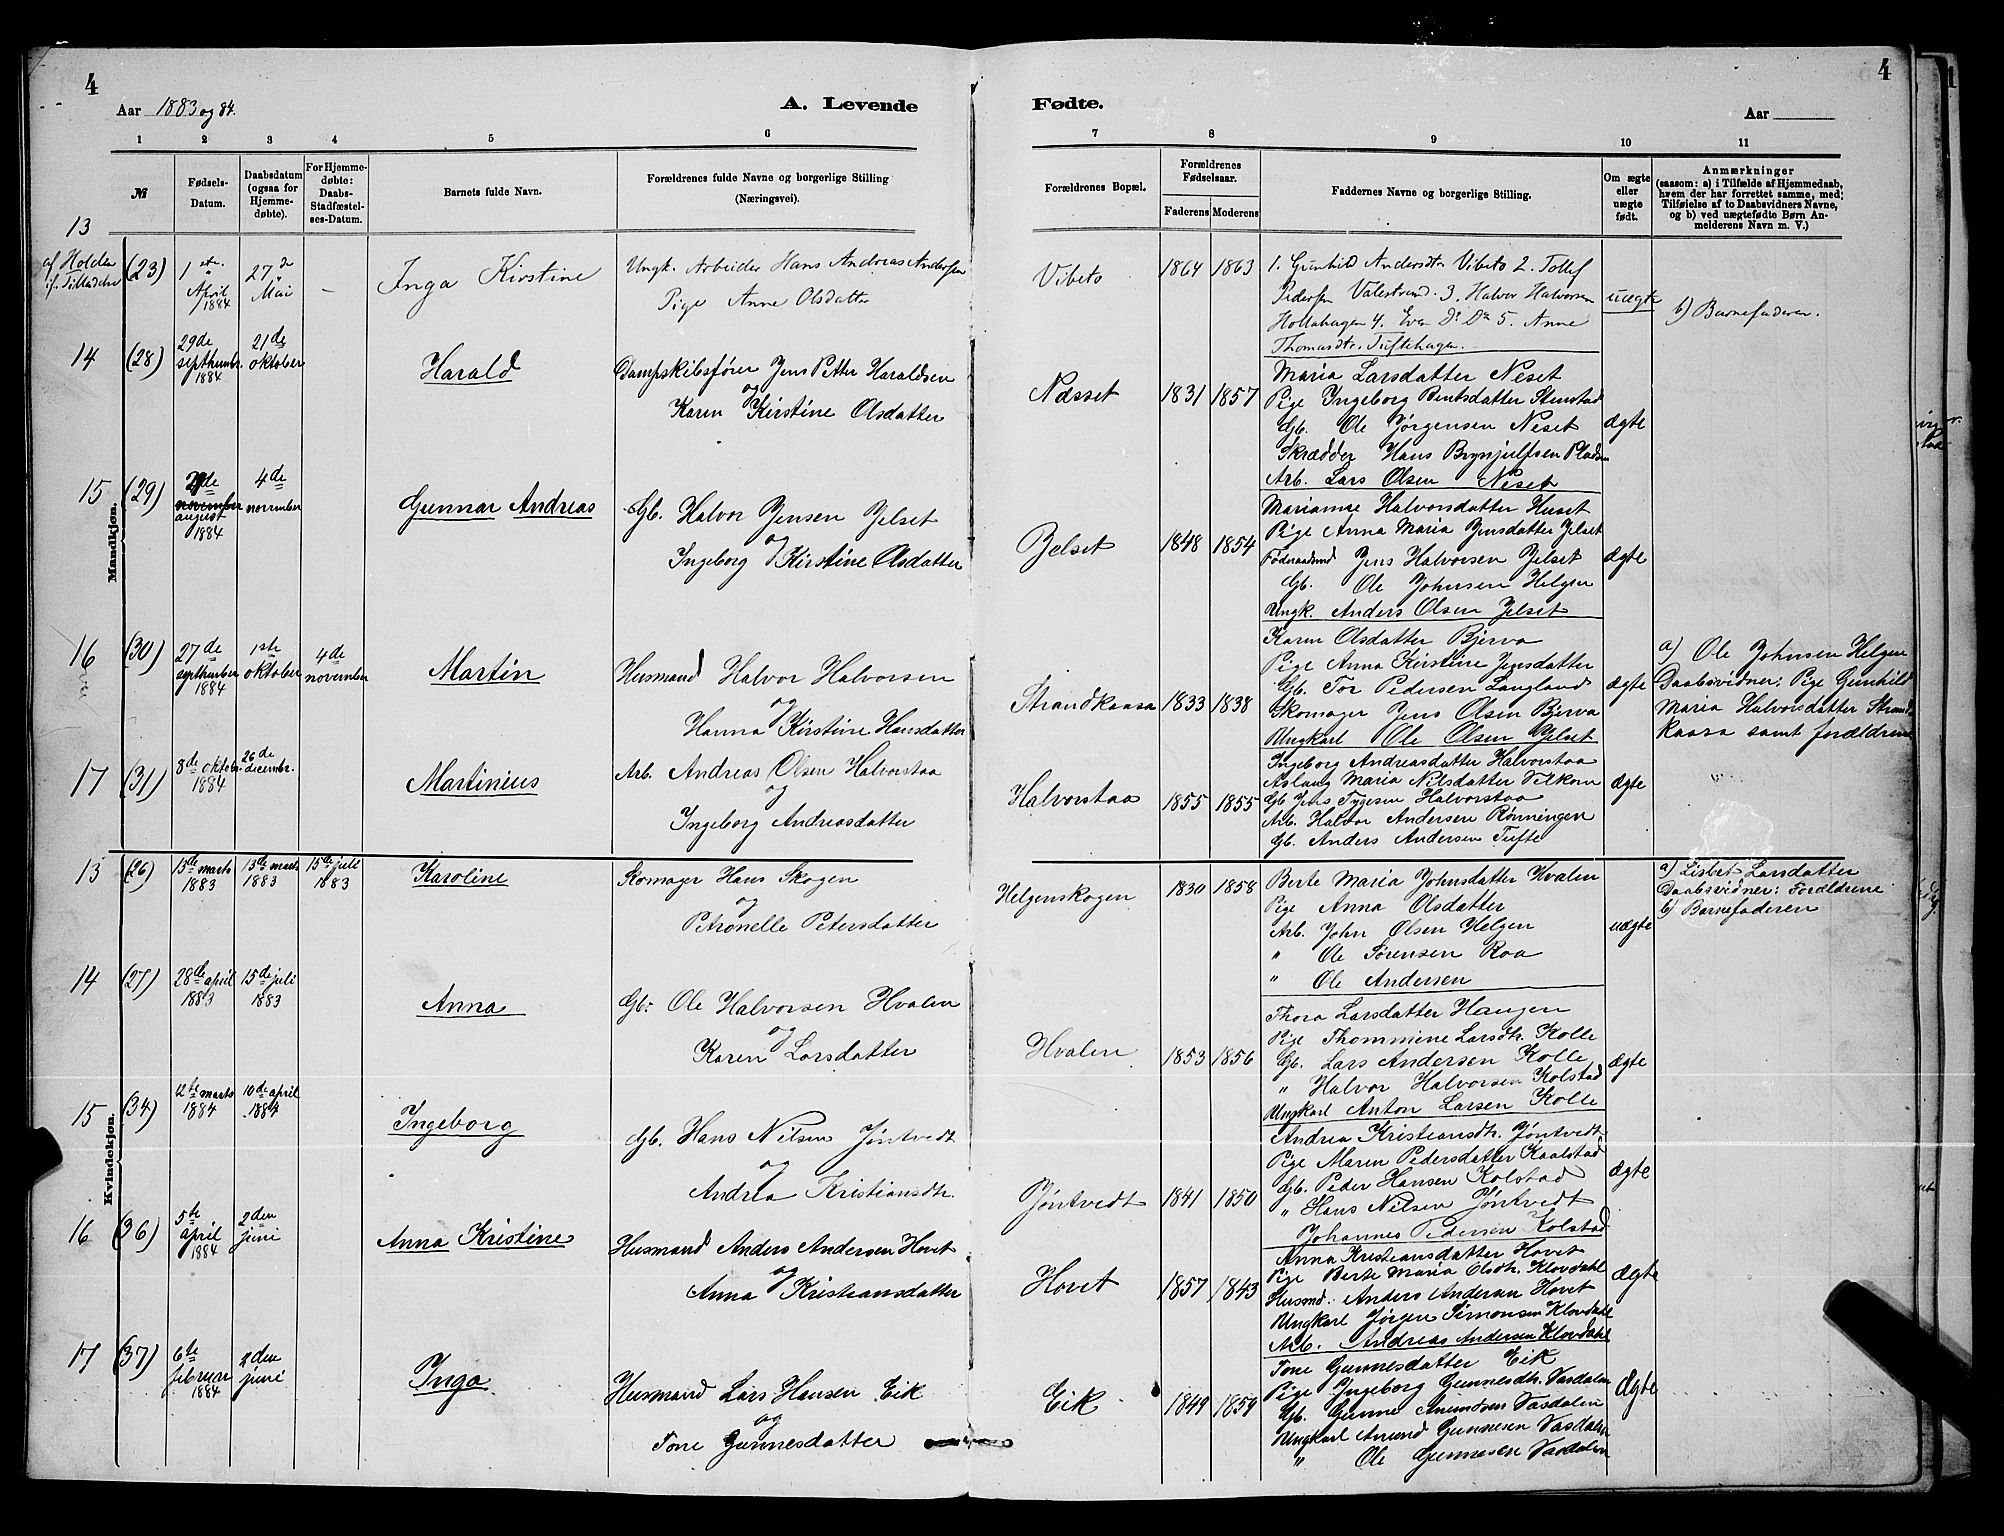 4
Aar 1883 og 84.
A. Levende
1 2 3 4 5 6
№
Fødsels-Datum.
Daabsdatum (ogsaa for Hjemmedøbte).
For Hjemmedøbte: Daabs-Stadfæstelses-Datum.
Barnets fulde Navn.
Forældrenes fulde Navne og borgerlige Stilling (Næringsvei).
Fødte.
4
Aar
7 8 9 10 11
Forældrenes Bopæl.
Forældrenes Fødselsaar.
Faderens Moderens
Faddernes Navne og borgerlige Stilling.
Om ægte eller uægte født.
Anmærkninger
(saasom: a) i Tilfælde af Hjemmedaab, hvem der har forrettet samme, med; Tilføielse af to Daabsvidners Navne, og b) ved uægtefødte Børn Anmelderens Navn m. V.)
Mandkjøn.
13
af Holden
(23) 1ste April 1884 27de Mai – Inga Kirstine
Ungk. Arbeider Hans Andreas Andersen
Pige Anne Olsdatter
Vibeto 1864 1863
1. Gunhild Andersdtr Vibeto 2. Tollef
Pedersen Valestrand. 3. Halvor Halvorsen
Hollahagen 4. Even Do Do 5. Anne
Thomasdtr. Tuftehagen.
uægte
b) Barnefaderen.
14 (28) 29de septhember 1884 21de oktober Harald
Dampskibsfører Jens Petter Haraldsen
og
Karen Kirstine Olsdatter
Næsset 1831 1857
Maria Larsdatter Neset
Pige Ingeborg Bentsdatter Stenstad
Gb. Ole Jørgensen Neset
Skrædder Hans Brynjulfsen Pladsen
Arb. Lars Olsen Neset
ægte
15 (29) de november august 1884 4de november Gunnar Andreas
Gb. Halvor Jensen Jelset
og
Ingeborg Kirstine Olsdatter
Jelset 1848 1854
Marianne Halvorsdatter Huset
Pige Anna Maria Jensdatter Jelset
Føderaadsmd Jens Halvorsen Jelset
Gb. Ole Johnsen Helgen
Ungk. Anders Olsen Jelset
ægte
16 (30) 27de septhember 1884 1ste oktober 4de november Martin
Husmand Halvor Halvorsen
og
Hanna Kirstine Hansdatter
Strandkaasa 1833 1838
Karen Olsdatter Bjerva
Pige Anna Kirstine Jensdatter
Gb. Tor Pedersen Langland
Skomager Jens Olsen Bjerva
Ungkarl Ole Olsen Jelset
ægte
a) Ole Johnsen Helgen
Daabsvidner: Pige Gunhild
Maria Halvorsdatter Strand-
kaasa samt forældrene
17 (31) 8de oktobr. 1884 26de decembr. Martinius
Arb. Andreas Olsen Halvorstaa
og
Ingeborg Andreasdatter
Halvorstaa 1855 1855
Ingeborg Andreasdatter Halvorstaa
Aslaug Maria Nilsdatter Vetkom
Gb. Jens Tygesen Halvorstaa
Arb. Halvor Andersen Rønningen
Gb. Anders Andersen Tufte
ægte
Kvindekjøn.
13 (26) 13de marts 1883 13de marts 1883 15de juli 1883 Karoline
Skomager Hans Skogen
og
Petronelle Petersdatter
Helgenskogen 1830 1858
Berte Maria Johnsdatter Hvalen
Pige Anna Olsdatter
Arb. John Olsen Helgen
" Ole Sørensen Roa
" Ole Andersen
uægte
a) Lisbet Larsdatter
Daabsvidner: Forældrene
b) Barnefaderen
14 (27) 28de april 1883 15de juli 1883 Anna
Gb. Ole Halvorsen Hvalen
og
Karen Larsdatter
Hvalen 1853 1856
Thora Larsdatter Haugen
Pige Thommine Larsdtr. Kolle
Gb. Lars Andersen Kolle
" Halvor Halvorsen Kolstad
Ungkarl Anton Larsen Kolle
ægte
15 (34) 12te marts 1884 10de april 1884 Ingeborg
Gb. Hans Nilsen Jøntvedt
og
Andrea Kristiansdtr.
Jøntvedt 1841 1850
Andrea Kristiansdtr. Jøntvedt
Pige Maren Pedersdatter Kaalstad
Gb. Peder Hansen Kolstad
" Hans Nilsen Jøntvedt
Johannes Pedersen Kolstad
ægte
16 (36) 5te april 1884 2den juni Anna Kristine
Husmand Anders Andersen Hovet
og
Anna Kristiansdatter
Hovet 1857 1843
Anna Kristiansdatter Hovet
Pige Berte Maria Olsdtr. Klovdahl
Husmd. Anders Andersen Hovet
Ungkarl Jørgen Simonsen Klovdahl
Arb. Andreas Andersen Klovdahl
ægte
17 (37) 6te februar 1884 2den juni Inga
Husmand Lars Hansen Eik
og
Tone Gunnesdatter
Eik 1849 1859
Tone Gunnesdatter Eik
Pige Ingeborg Gunnesdtr. Vasdalen
Gb. Gunne Amundsen Vasdalen
Ungkarl Amund Gunnesen Vasdalen
" Ole Gunnesen Vasdalen
ægte